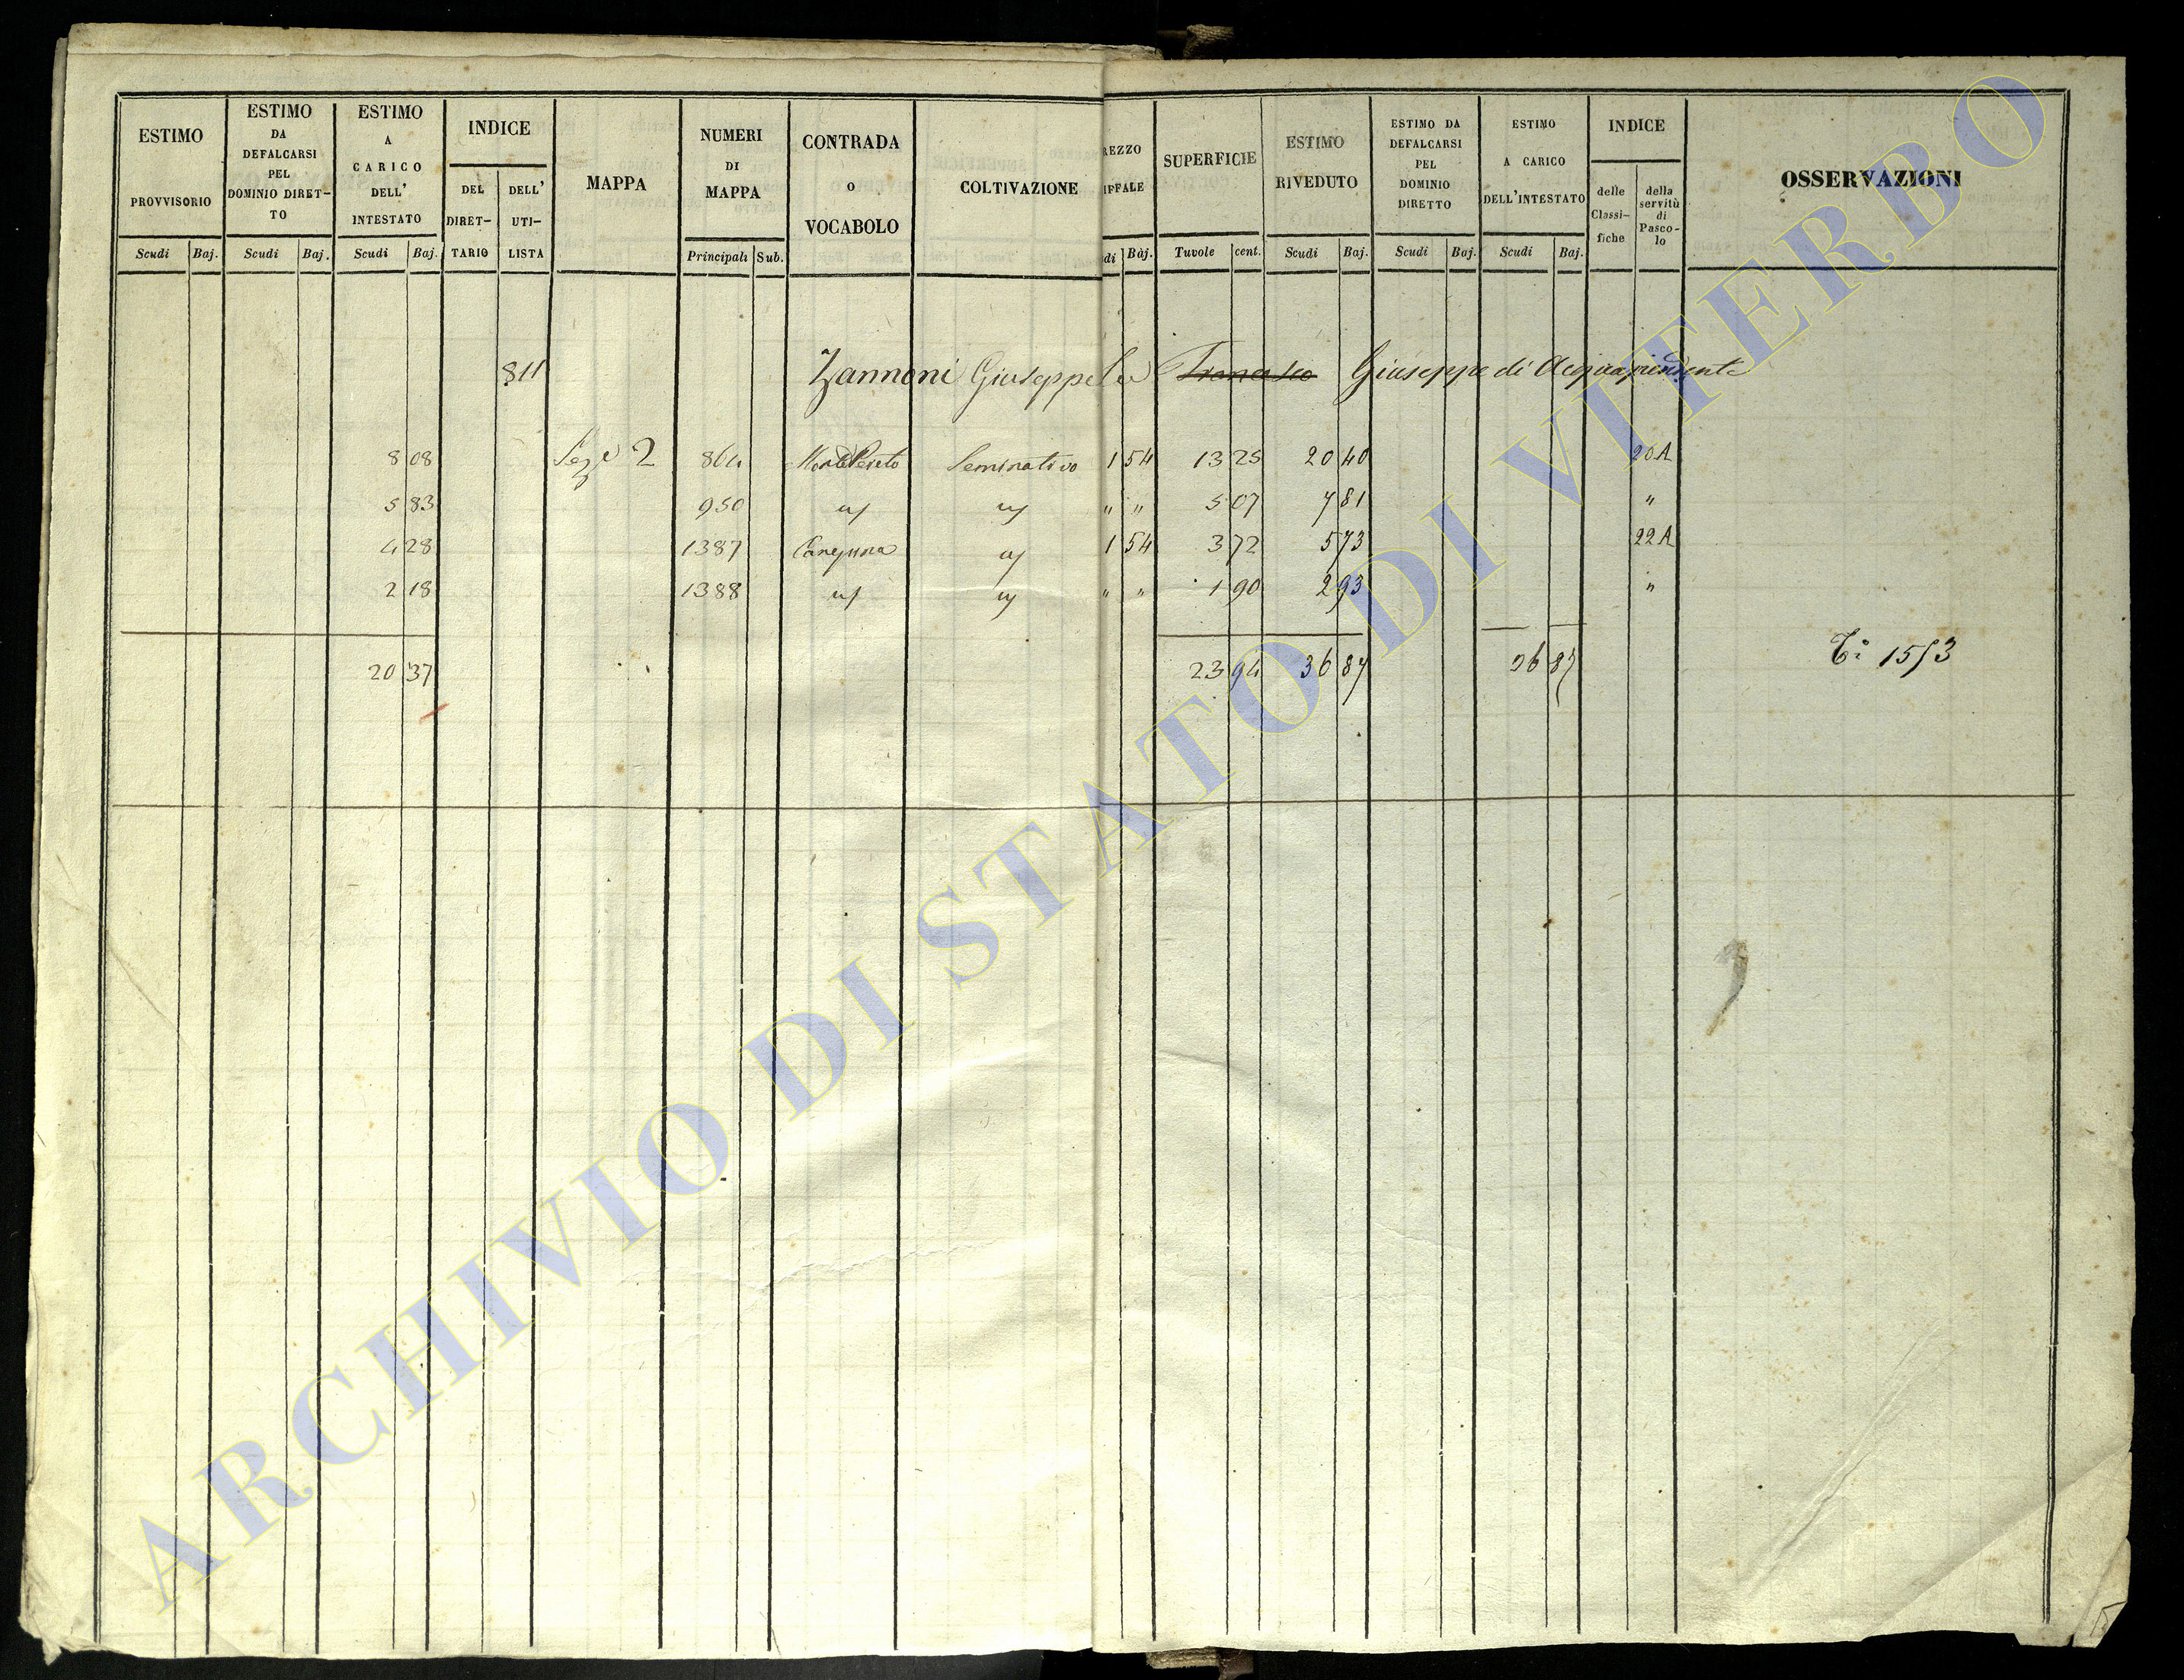 ESTIMO PROVVISORIO Scudi Baj.
ESTIMO DA DEFALCARSI PEL DOMINIO DIRET-TO Scudi Baj.
ESTIMO A CARICO DELL' INTESTATO Scudi Baj.
INDICE DEL DIRET-TARIO DELL' UTI-LISTA
MAPPA
NUMERI DI MAPPA Principali Sub.
CONTRADA o VOCABOLO
COLTIVAZIONE
REZZO IFFALE di Baj.
SUPERFICIE Tavole cent.
ESTIMO RIVEDUTO Scudi Baj.
ESTIMO DA DEFALCARSI PEL DOMINIO DIRETTO Scudi Baj.
ESTIMO A CARICO DELL'INTESTATO Scudi Baj.
INDICE delle Classi-fiche della servitù di Pasco-lo
OSSERVAZIONI
811 Zannoni Giuseppe Francesco Giuseppe di Acquapendente
8 08 Sez e 2 864 Seminativo 1 54 13 25 20 40 20 A
5 83 950 " " 5 07 7 81 "
4 28 1387 1 54 3 72 5 73 22 A
2 18 1388 " " 1 90 2 93 "
20 37 23 94 36 87 36 87 1553
ARCHIVIO DI STATO DI VITERBO